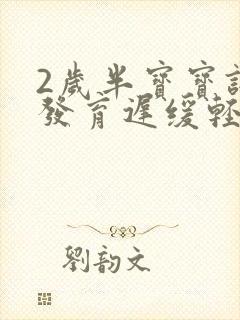 2歲半寶寶
發育遲緩輕
劉韵文